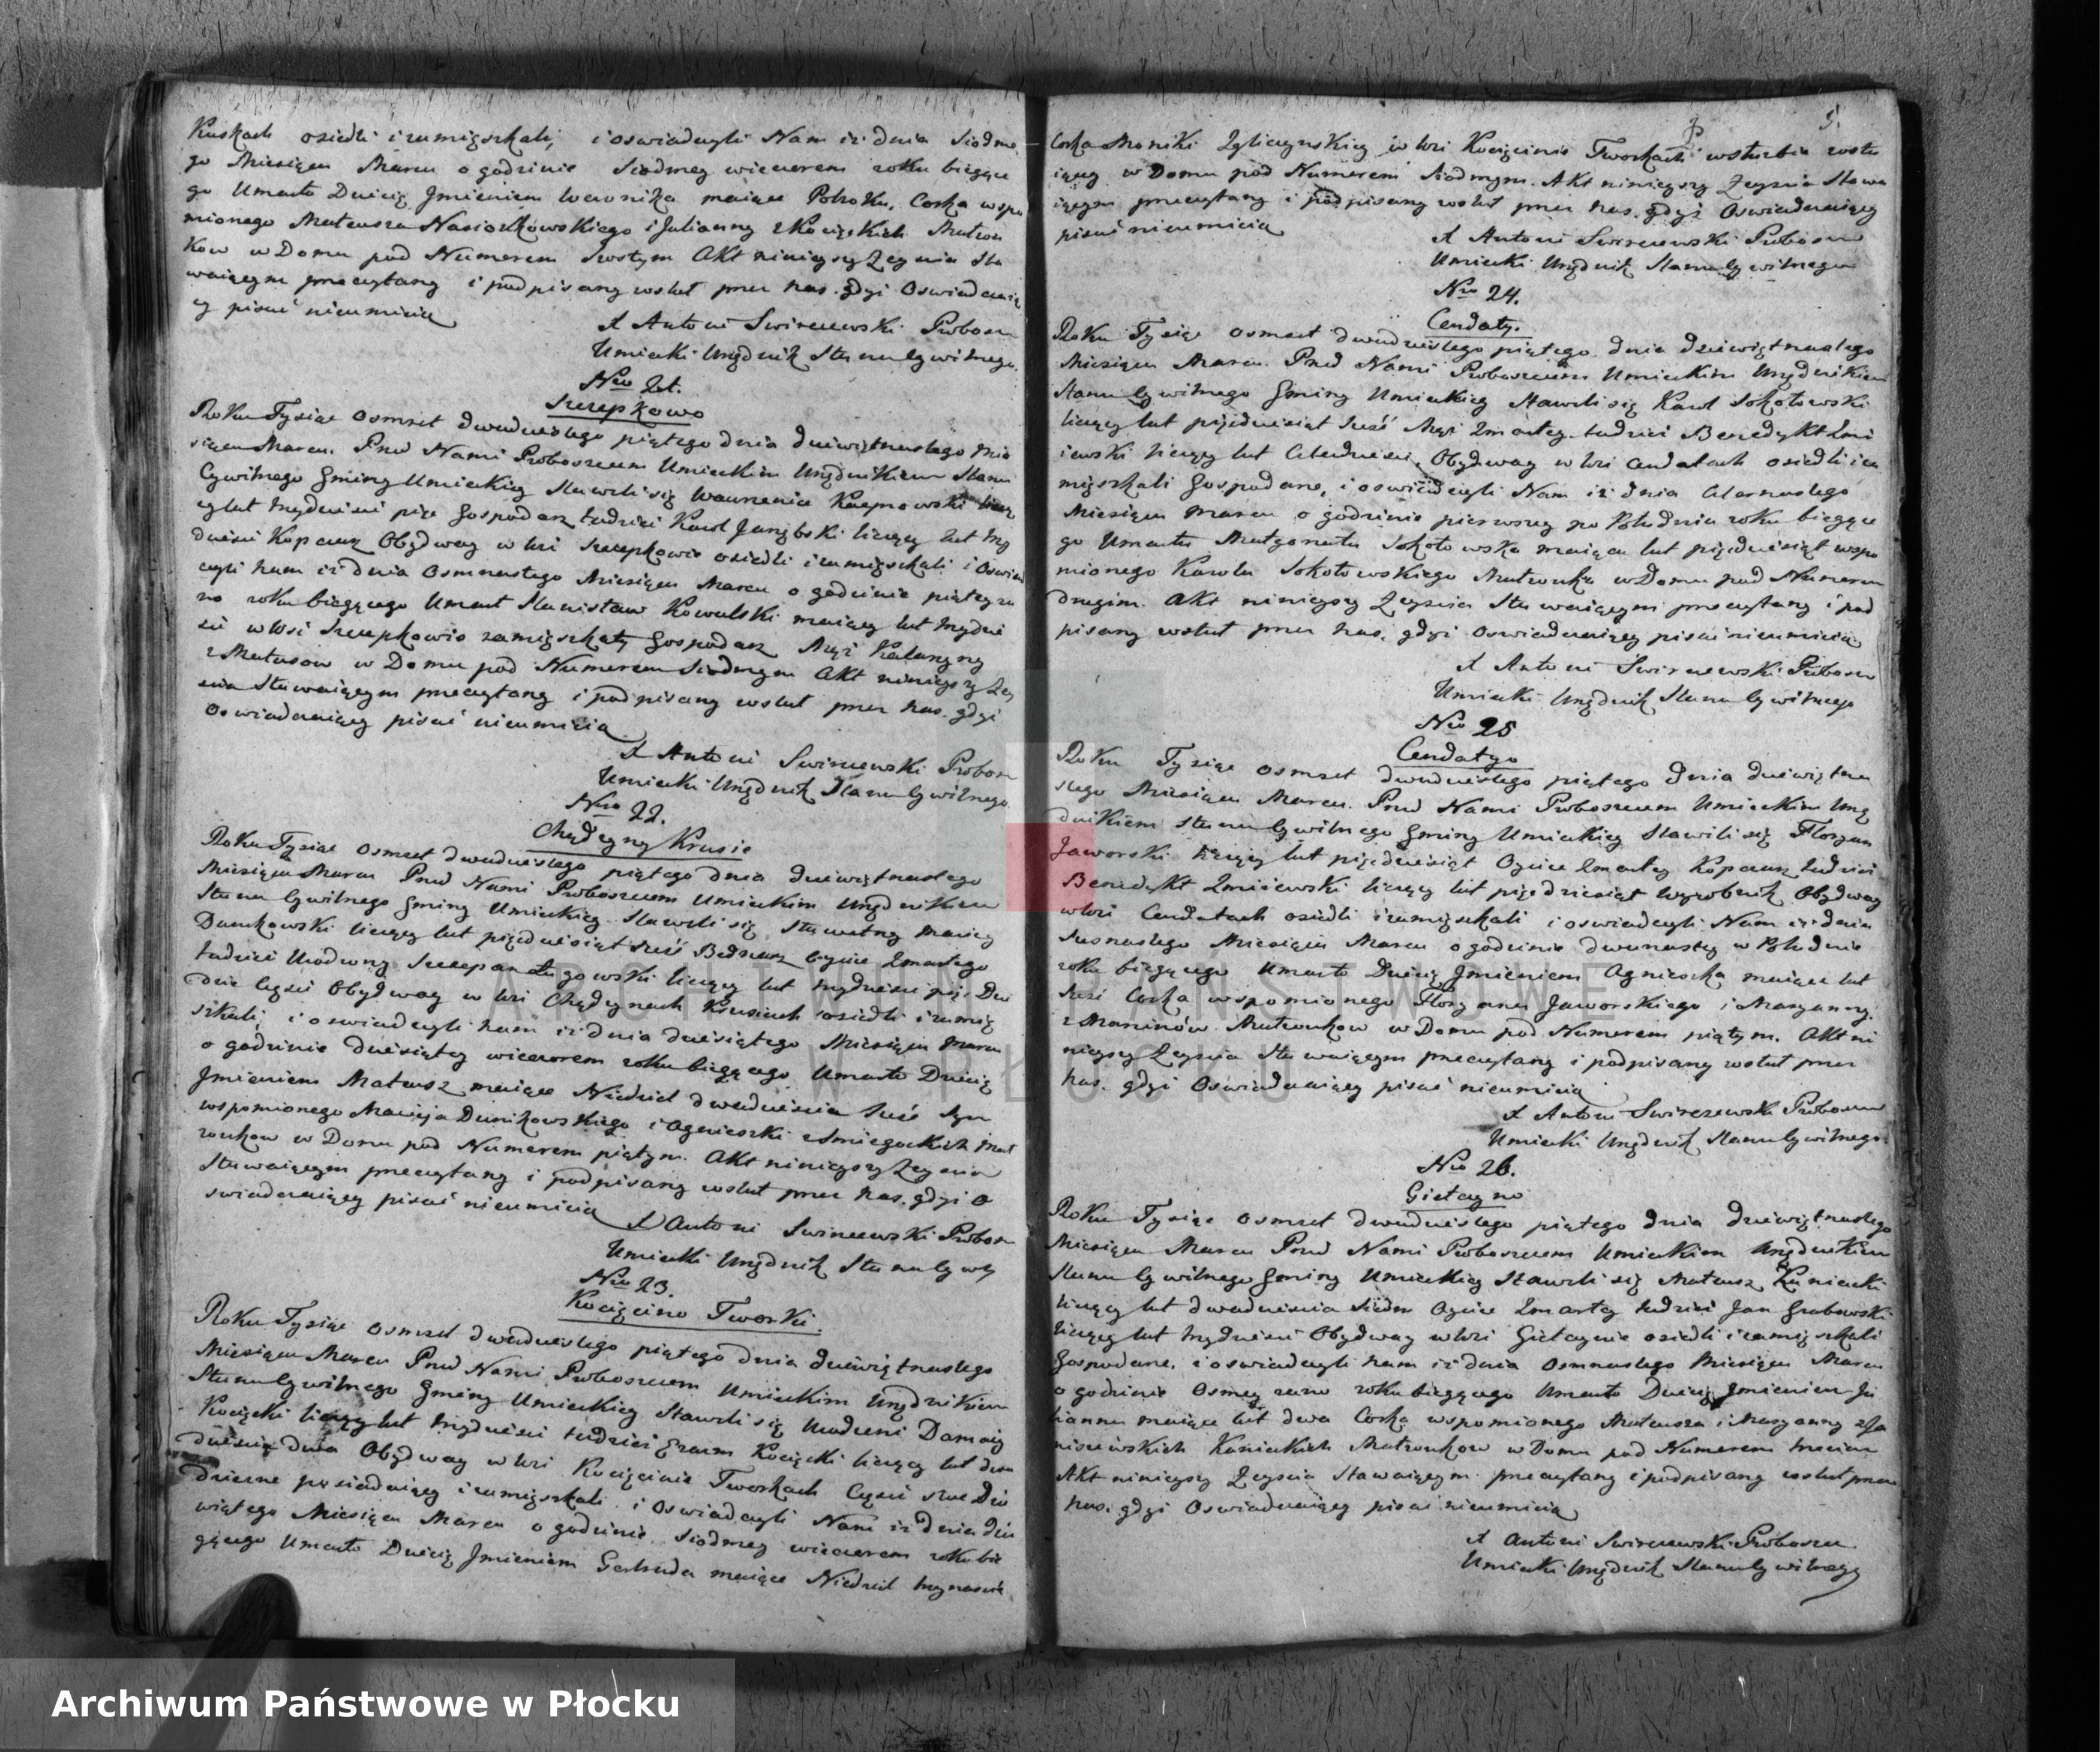 Kuskach osiedli i zamięszkali, i oswiadczyli Nam iż dnia Siodme
go Miesiąca Marca o godzinie Siodmey wieczorem roku bieżące
go Umarło Dziecię Jmieniem Weronika maiące Połroku, Corka wspo
mionego Mateusza Nasiorkowskiego i Julianny z Kocięckich Małżon
kow w Domu pod Numerem Szostym Akt ninieyszy Zeyscia Sta
waiącym przeczytany i podpisany został przez nas. gdyż Oswiadczaią
cy pisać nieumieią
X Antoni Swirczewski Probosz
Umiecki Urzędnik Stanu Cywilnego.
Nro 21.
Szczepkowo
Roku Tysiąc Osmset dwudziestego piątego dnia dziewiętnastego Mie
siąca Marca. Przed Nami Proboszczem Umieckim Urzędnikiem Stanu
Cywilnego Gminy Umieckiey Stawili się Wawrzeniec Kacprowski licz
cy lat trzydzieści pięć Gospodarz tudzież Karol Jarzębski liczący lat trzy
dzieści Kopczarz Obydway w Wsi Szczepkowie osiedli i zamięszkali i Oswiad
czyli nam iż dnia Osmnastego Miesiąca Marca o godzinie piątey ra
no roku bieżącego Umarł Stanisław Kowalski maiący lat trzydzie
ści w Wsi Szczepkowie zamięszkały Gospodarz Mąż Katarzyny
z Matusow w Domu pod Numerem Siodmym Akt ninieyszy Zey
scia Stawaiącym przeczytany i podpisany został przez nas. gdyż
Oswiadczaiący pisać nieumieią
X Antoni Swirczewski Probosz
Umiecki Urzędnik Stanu Cywilnego
Nro 22.
Chędzyny Krusie
Roku Tysiąc Osmset dwudziestego piątego dnia dziewiętnastego
Miesiąca Marca Przed Nami Proboszczem Umieckim Urzędnikiem
Stanu Cywilnego Gminy Umieckiey Stawili się Sławetny Maciey
liczący lat pięćdziesiąt sześć Bednarz Oyciec Zmarłego
tudzież Urodzony Szczepan Ługowski liczący lat trzydzieści pięć Dzie
dzic Części Obydway w Wsi Chędzynach Krusiach osiedli i zamię
szkali, i oswiadczyli nam iż dnia dziesiątego Miesiąca Marca
o godzinie dziesiątey wieczorem roku bieżącego Umarło Dziecię
Jmieniem Mateusz maiące Niedziel dwadzieścia sześć Syn
wspomionego Macieja Dunikowskiego i Agnieszki z Smiegockich Mał
żonkow w Domu pod Numerem piątym. Akt ninieyszy Zeyscia
Stawaiącym przeczytany i podpisany został przez nas. gdyż O
swiadczaiący pisać nieumieią
X Antoni Swirczewski Probosz
Umiecki Urzędnik Stanu Cywil
Nro 23.
Kocięcino Tworki.
Roku Tysiąc Osmset dwudziestego piątego dnia dziewiętnastego
Miesiąca Marca Przed Nami Proboszczem Umieckim Urzędnikiem
Stanu Cywilnego Gminy Umieckiey Stawili się Urodzeni Damazy
Kocięcki liczący lat trzydzieści tudzież Erazm Kocięcki liczący lat dwa
dzieścia dwa Obydway w Wsi Kocięcinie Tworkach Części swe Dzie
dziczne posiadaiący i zamięszkali i Oswiadczyli Nam iż dnia dzie
wiątego Miesiąca Marca o godzinie Siodmey wieczorem roku bie
żącego Umarło Dziecię Jmieniem Gertruda maiące Niedziel trzynaście
5.
Corka Moniki Zgliczynskiey w Wsi Kocięcinie Tworkach wsłużbie zosta
iącey w Domu pod Numerem Siodmym. Akt ninieyszy Zeyscia Stawa
iącym przeczytany i podpisany został przez nas. gdyż Oswiadczaiący
pisać nieumieią
X Antoni Swirczewski Probosz
Umiecki Urzędnik Stanu Cywilnego
Nro 24.
Cendaty.
Roku Tysiąc Osmset dwudziestego piątego dnia dziewiętnastego
Miesiąca Marca. Przed Nami Proboszczem Umieckim Urzędnikiem
Stanu Cywilnego Gminy Umieckiey Stawili się Karol Sokołowski
liczący lat pięćdziesiąt sześć Mąż Zmarłey tudzież Benedykt Zmi
iewski liczący lat Obydway w Wsi Cendatach osiedli i za
mięszkali Gospodarze, i oswiadczyli Nam iż dnia Czternastego
Miesiąca Marca o godzinie pierwszey po Południu roku bieżące
go Umarła Małgorzata Sokołowska maiąca lat pięćdziesiąt wspo
mionego Karola Sokołowskiego Małżonka w Domu pod Numerem
drugim. Akt ninieyszy Zeyscia Stawaiącym przeczytany i pod
pisany został przez nas. gdyż Oswiadczaiący pisać nieumieią
X Antoni Swirczewski Probosz
Umiecki Urzędnik Stanu Cywilnego
Nro 25
Cendaty
Roku Tysiąc Osmset dwudziestego piątego Dnia dziewiętna
stego Miesiąca Marca. Przed Nami Proboszczem Umieckim Urzę
dnikiem Stanu Cywilnego Gminy Umieckiey Stawili się Floryan
Jaworski liczący lat pięćdziesiąt Oyciec Zmarłey Kopczarz tudzież
Benedykt Zmiiewski liczący lat pięćdziesiąt Wyrobnik Obydway
w Wsi Cendatach osiedli i zamięszkali i oswiadczyli Nam iż dnia
Szesnastego Miesiąca Marca o godzinie dwunastey w Południe
roku bieżącego Umarło Dziecię Jmieniem Agnieszka maiące lat
sześć Corka wspomionego Floryana Jaworskiego i Maryanny.
z Marcinów Małżonkow w Domu pod Numerem piątym. Akt ni
nieyszy Zeyscia Stawaiącym przeczytany i podpisany został przez
nas. gdyż Oswiadczaiący pisać nieumieią
X Antoni Swirczewski Probosz
Umiecki Urzędnik Stanu Cywilnego
Nro 26.
Giełczyno
Roku Tysiąc Osmset dwudziestego piątego dnia dziewiętnastego
Miesiąca Marca Przed Nami Proboszczem Umieckim Urzędnikiem
Stanu Cywilnego Gminy Umieckiey Stawili się Mateusz Kaniecki
liczący lat dwadzieścia siedm Oyciec Zmarłey tudzież Jan Grabowski
liczący lat trzydzieści Obydway w Wsi Giełczynie osiedli i zamięszkali
Gospodarze, i oswiadczyli nam iż dnia Osmnastego Miesiąca Marca
o godzinie Osmey rano roku bieżącego Umarło Dziecię Jmieniem Ju
lianna maiące lat dwa Corka wspomionego Mateusza i Maryanny z Ja
niszewskich Kanieckich Małżonkow w Domu pod Numerem trzecim
Akt ninieyszy Zeyscia Stawaiącym przeczytany i podpisany został przez
nas. gdyż Oswiadczaiący pisać nieumieią
X Antoni Swirczewski Probosz
Umiecki Urzędnik Stanu Cywilnego
ARCHIWUM PAŃSTWOWE
W PŁOCKU
Archiwum Państwowe w Płocku